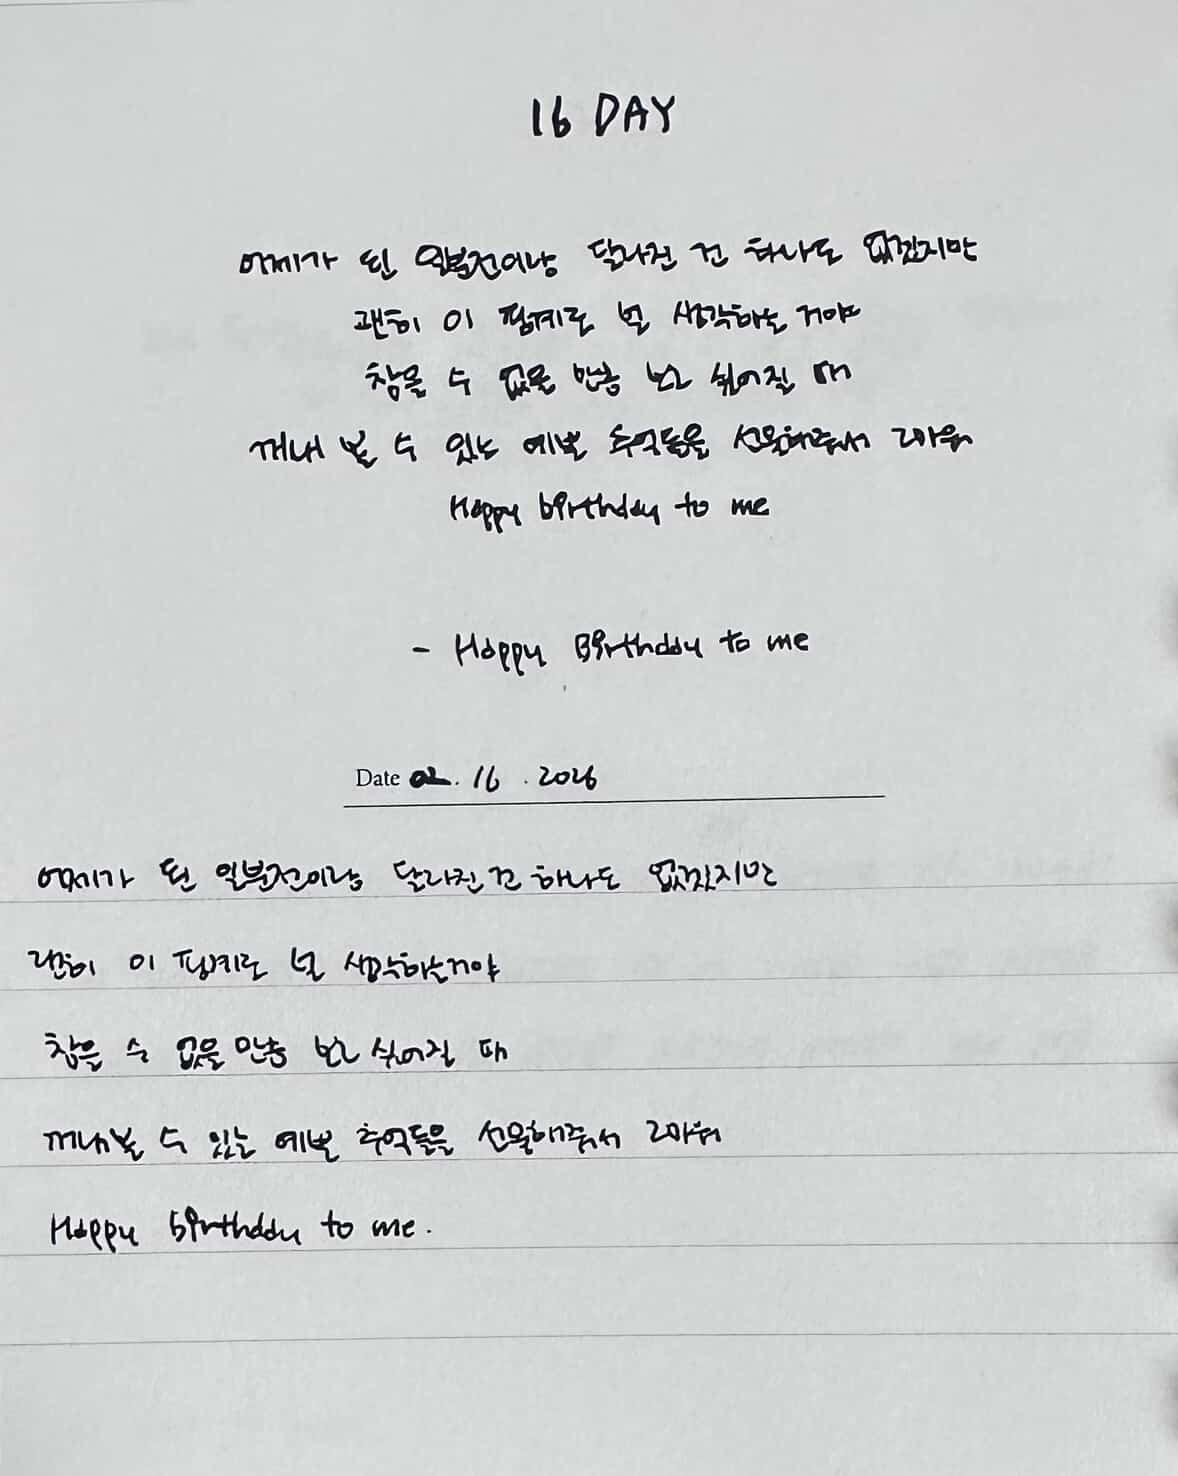 16 DAY
어제가 된 일분전이랑 달라진 건 하나도 없겠지만
괜히 이 핑계로 널 생각하는 거야
참을 수 없을 만큼 보고 싶어질 때
꺼내 볼 수 있는 예쁜 추억들을 선물해줘서 고마워
Happy birthday to me
- Happy Birthday to me
Date 02. 16. 2026
어제가 된 일분전이랑 달라진 건 하나도 없겠지만
괜히 이 핑계로 널 생각하는거야
참을 수 없을 만큼 보고 싶어질 때
꺼내볼 수 있는 예쁜 추억들을 선물해줘서 고마워
Happy birthday to me.